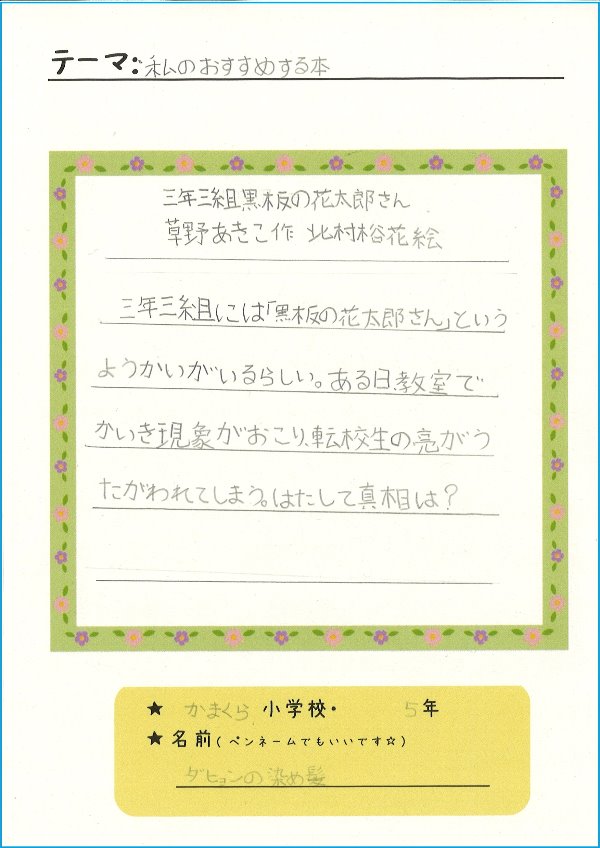 テーマ:私のおすすめする本
三年三組黒板の花太郎さん
草野あきこ作 北村裕花絵
三年三組には「黒板の花太郎さん」という
ようかいがいるらしい。ある日教室で
かいき現象がおこり、転校生の亮がう
たがわれてしまう。はたして真相は?
★ かまくら 小学校・ 5年
★名前(ペンネームでもいいです☆)
ダヒョンの染め髪